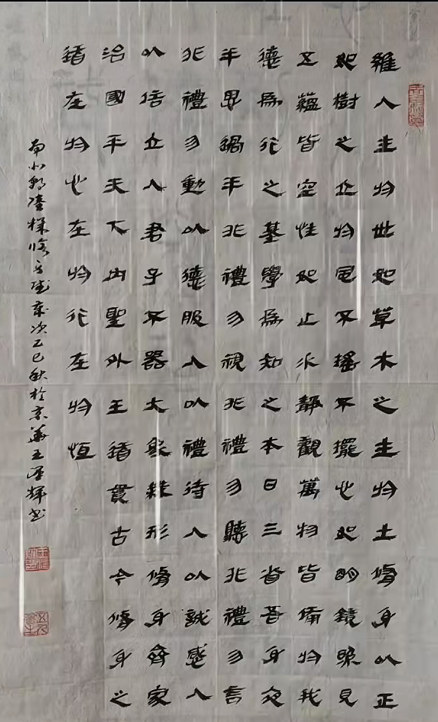 人生於世如草木之生於土脩身以正
如樹之立於風不搖不擺也如明鏡照見
五蘊皆空性如止水靜觀萬物皆備於我
德為行之基學為知之本日三省吾身夜
半思過半非禮勿視非禮勿聽非禮勿言
非禮勿動以德服人以禮待人以誠感人
以信立人君子不器大象形脩身齊家
治國平天下內聖外王道貫古今脩身之
道在於心在於行在於恆
歲次乙巳秋於京華王輝書